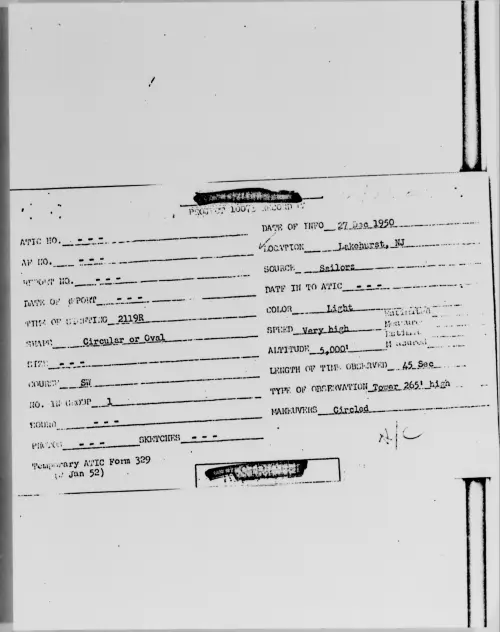 PROJECT 10073 RECORD
DATE OF INFO 27 Dec 1950
ATIC NO. - - -
LOCATION Lakehurst, NJ
AF NO. - - -
SOURCE Sailors
REPORT NO. - - -
DATE IN TO ATIC - - -
DATE OF REPORT - - -
COLOR Light
TIME OF SIGHTING 2119R
SPEED Very high
SHAPE Circular or Oval
ALTITUDE 5,000'
SIZE - - -
LENGTH OF TIME OBSERVED 45 Sec
COURSE SW
TYPE OF OBSERVATION Tower 265' high
NO. IN GROUP 1
MANEUVERS Circled
SOUND - - -
A/C
PHOTOS - - - SKETCHES - - -
Temporary ATIC Form 329
Jan 52)